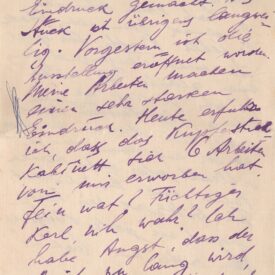 Eindruck gemacht.
Auch ist übrigens langwei-
lig. Vorgestern ist die
Ausstellung eröffnet worden.
Meine Arbeiten machen
einen sehr starken
Eindruck. Heute erfuhr
ich, dass das Kupferstich-
Kabinett hier 6 Arbeiten
von mir erworben hat.
Fein wat? Tüchtiges
Kerl, nich wahr? Ich
habe Angst, dass der
lang wird,